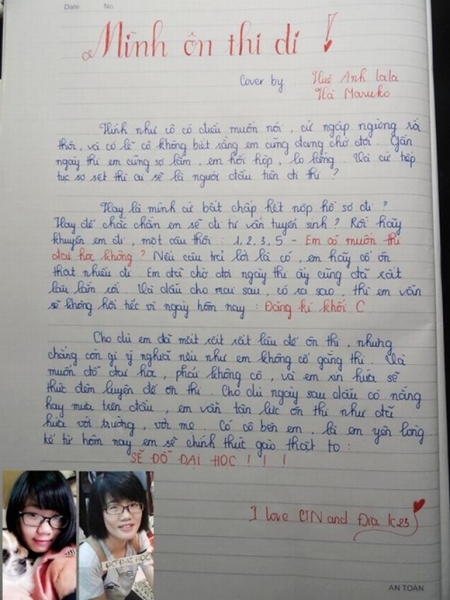 Date No.
Mình ôn thi đi !
Cover by Huê Anh lala
Hà Maruko
Hình như cô có điều muốn nói, cứ ngập ngừng rồi
thôi, và có lẽ cô không biết rằng em cũng đang chờ đợi. Gần
ngày thi em cũng sợ lắm, em hồi hộp, lo lắng. Và cứ tiếp
tục sợ sệt thì ai sẽ là người đầu tiên đi thi ?
Hay là mình cứ bất chấp hết nộp hồ sơ đi ?
Hay để chắc chắn em sẽ đi tư vấn tuyển sinh ? Rồi hãy
khuyên em đi, một câu thôi : 1, 2, 3, 5 - Em có muốn thi
đại học không ? Nếu câu trả lời là có, em hãy cố ôn
thật nhiều đi. Em đã chờ đợi ngày thi ấy cũng đã rất
lâu lắm rồi. Và dẫu cho mai sau, có ra sao, thì em vẫn
sẽ không hối tiếc vì ngày hôm nay : Đăng kí khối C
Cho dù em đã mất rất rất lâu để ôn thi, nhưng
chẳng còn gì ý nghĩa nếu như em không cố gắng thi. Và
muốn đỗ đại học, phải không cô, và em xin hứa sẽ
thức đêm luyện đề ôn thi. Cho dù ngày sau dẫu có nắng
hay mưa trên đầu, em vẫn tận lực ôn thi như đã
hứa với trường, với mẹ. Có cô bên em, là em yên lòng
kể từ hôm nay em sẽ chính thức gào thật to :
SẼ ĐỖ ĐẠI HỌC ! ! !
I love CTN and Địa K23
ĐỖ ĐẠI HỌC
AN TOÀN